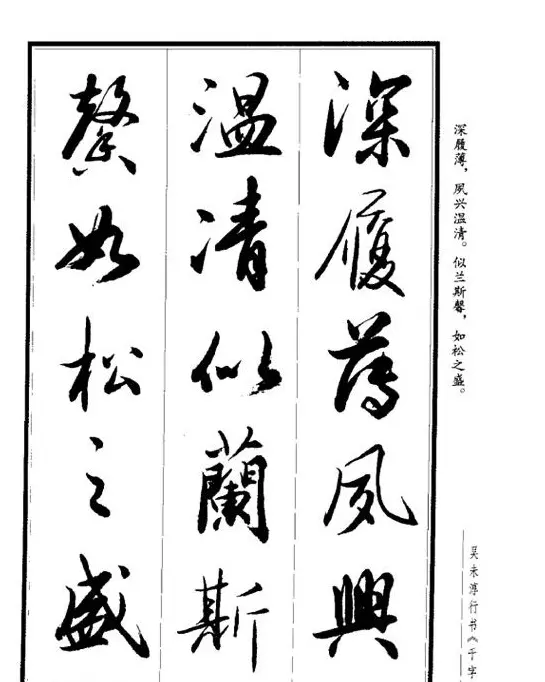 深履薄夙興
温凊似蘭斯
馨如松之盛
深履薄，夙兴温清。似兰斯馨，如松之盛。
吴未淳行书《千字